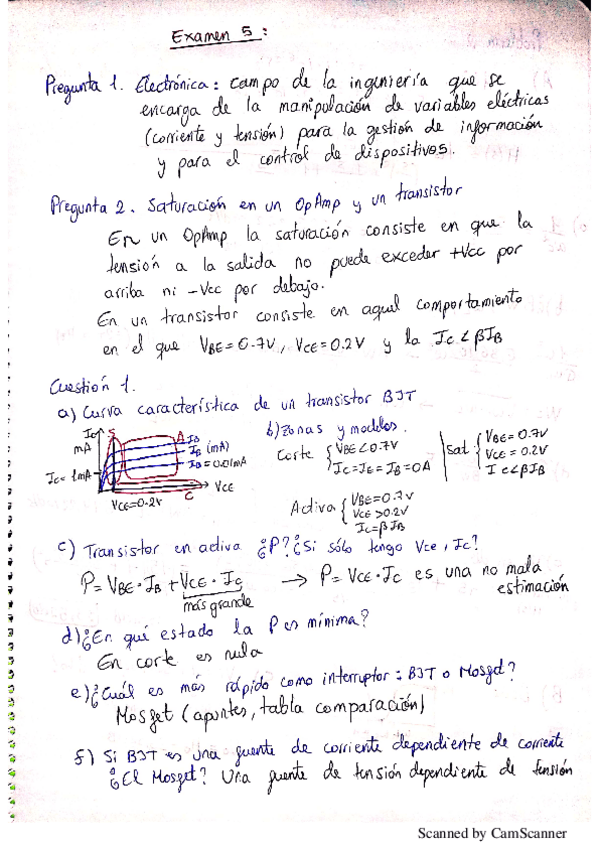 Examen 5:
Pregunta 1. Electrónica: campo de la ingeniería que se
encarga de la manipulación de variables eléctricas
(corriente y tensión) para la gestión de información
y para el control de dispositivos.
Pregunta 2. Saturación en un OpAmp y un transistor
En un OpAmp la saturación consiste en que la
tensión a la salida no puede exceder +Vcc por
arriba ni -Vcc por debajo.
En un transistor consiste en aquel comportamiento
en el que VBE=0.7V, VCE=0.2V y la Ic<βIB
Cuestión 1.
a) Curva característica de un transistor BJT
Ic
mA
S
A
IB
IB (mA)
IB=0.01mA
Ic=1mA
VCE
C
VCE=0.2V
b) zonas y modelos.
Corte { VBE<0.7V
Ic=IE=IB=0A
Sat { VBE=0.7V
VCE=0.2V
Ic<βIB
Activa { VBE=0.7V
VCE>0.2V
Ic=βIB
c) Transistor en activa ¿P? ¿Si sólo tengo Vce, Ic?
P=VBE·IB+VCE·Ic → P=VCE·Ic es una no mala
más grande
estimación
d) ¿En qué estado la P es mínima?
En corte es nula
e) ¿Cuál es más rápido como interruptor: BJT o Mosfet?
Mosfet (apuntes, tabla comparación)
f) Si BJT es una fuente de corriente dependiente de corriente
¿El Mosfet? Una fuente de tensión dependiente de tensión
Scanned by CamScanner